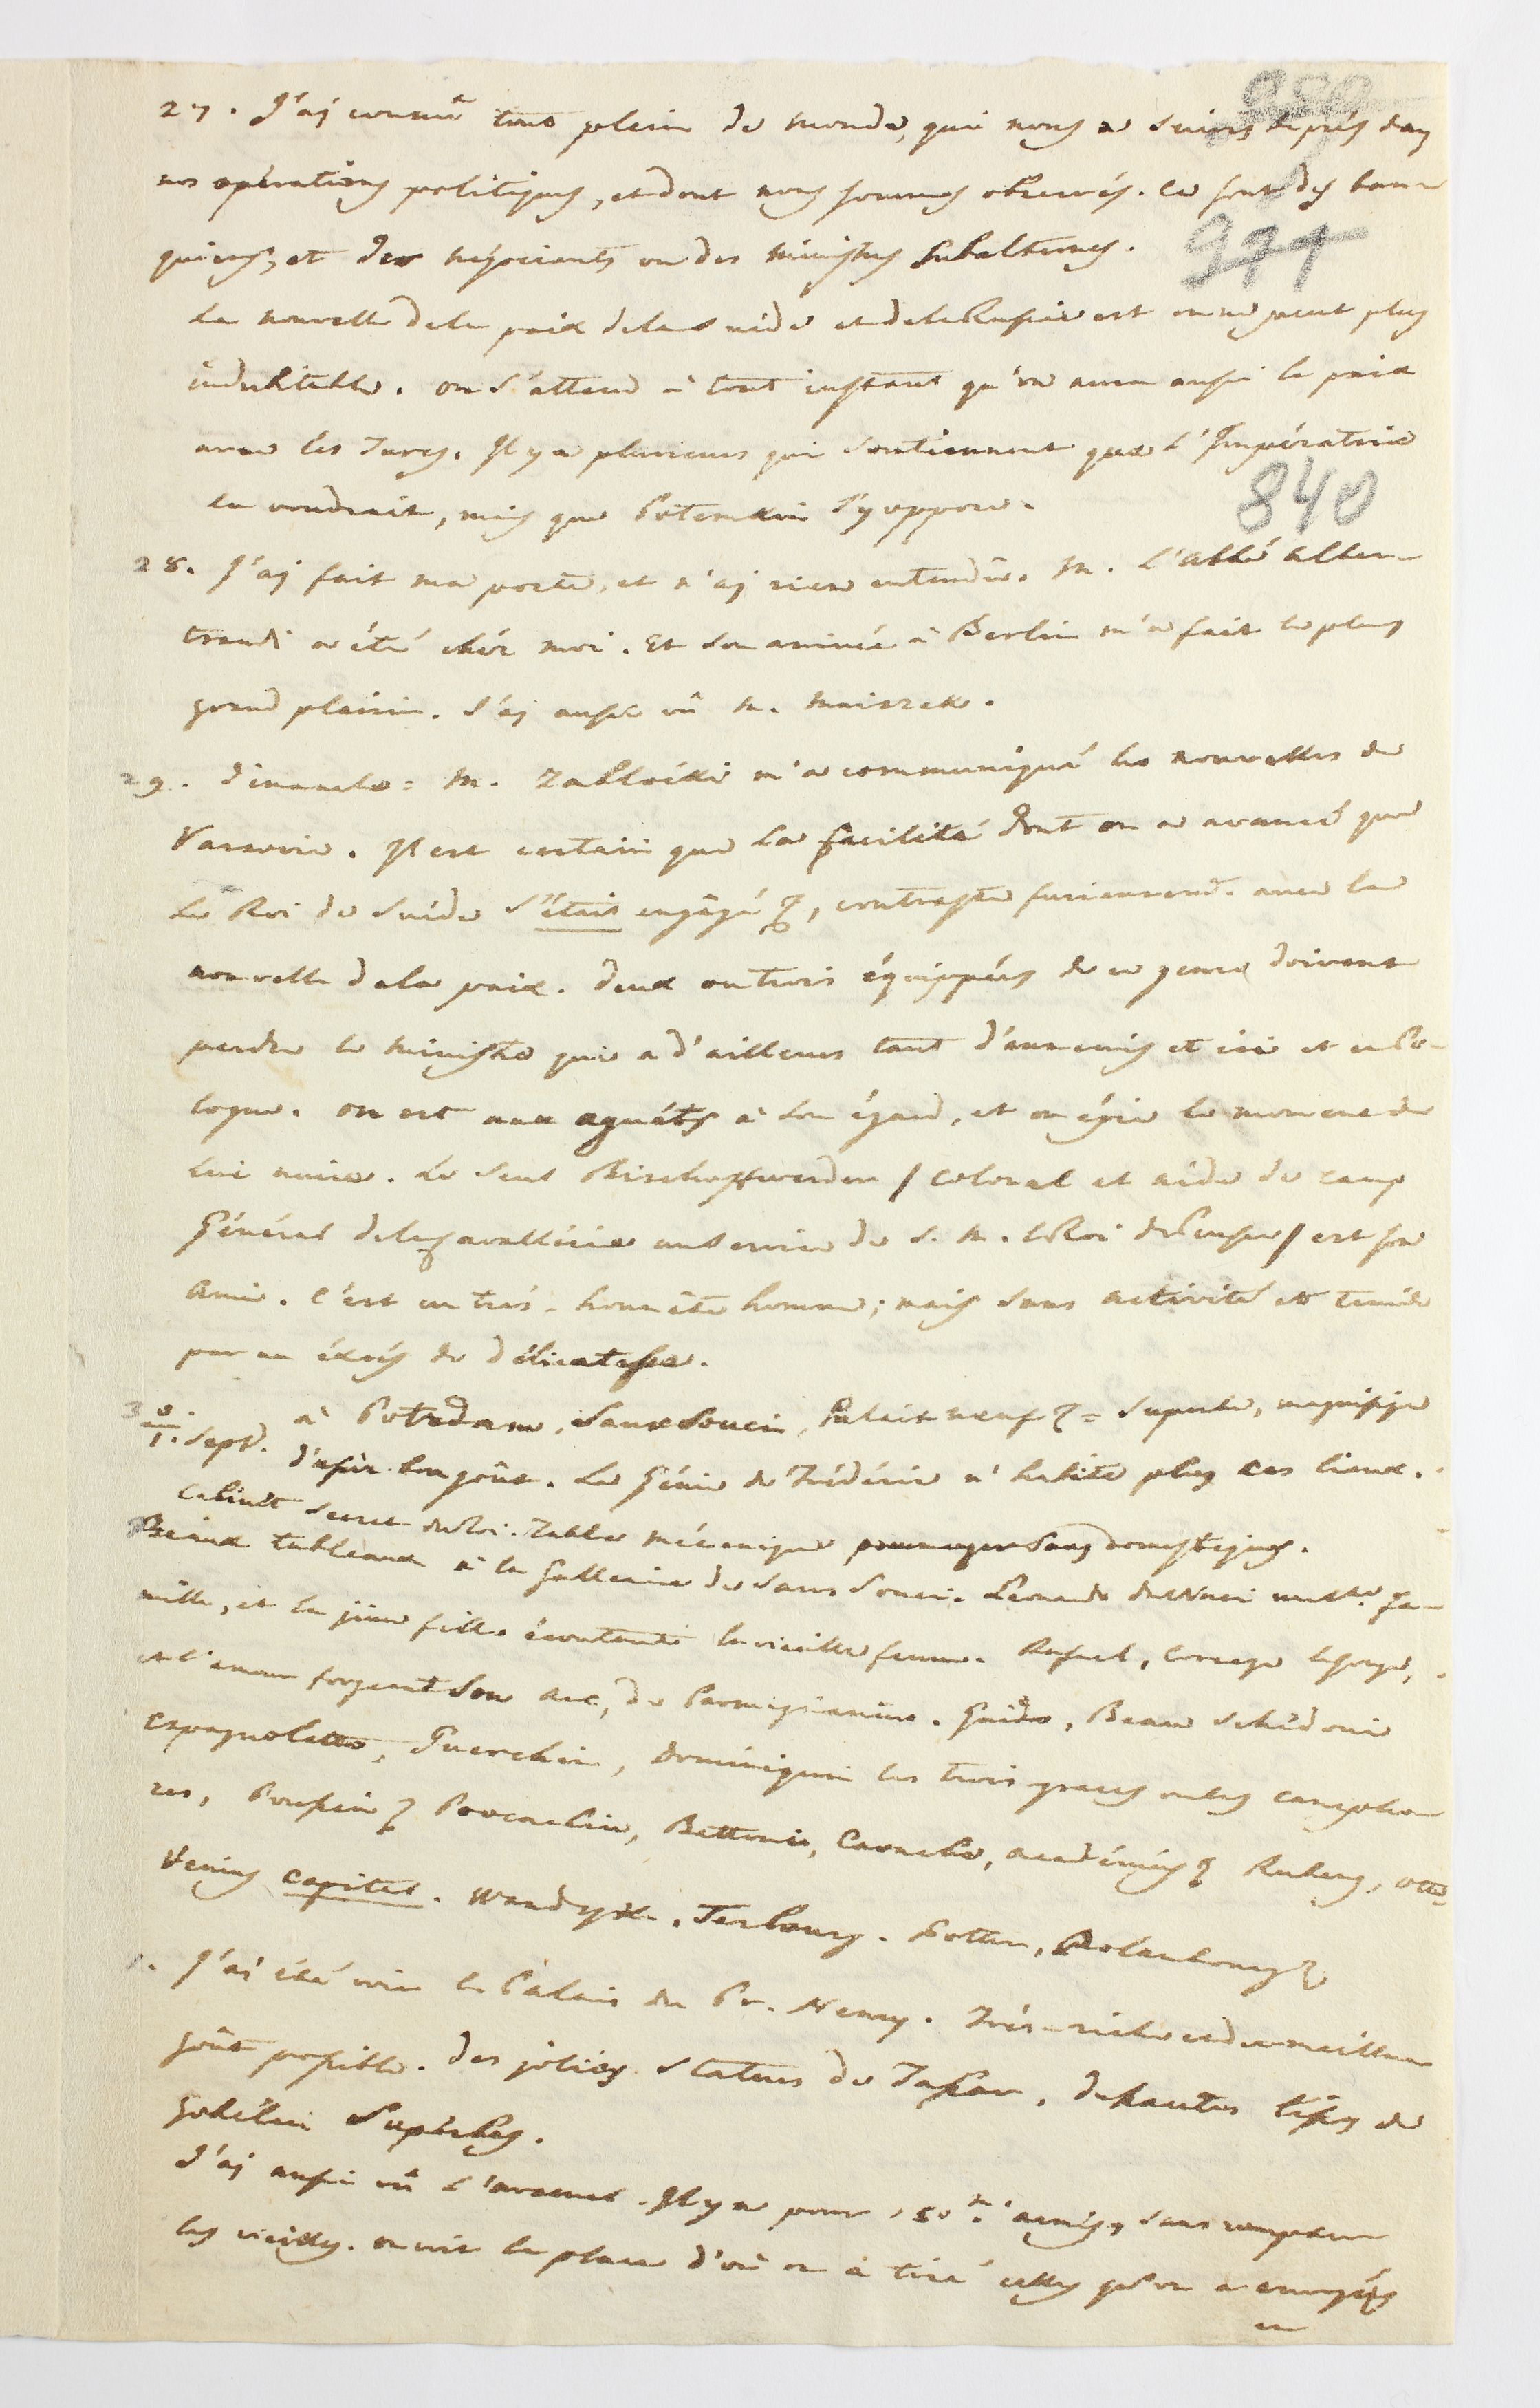 27. J'aj connû tout plein de monde, qui nous a suivis de près dans
nos opérations politiques, et dont nous sommes observés. Ce sont des ban-
quiers, et des négociants ou des ministres subalternes.
980
971
La nouvelle de la paix de la Suède et de la Russie est on ne peut plus
indubitable. on s'attend à tout instant qu'on aura aussi la paix
avec les Turcs. Il y a plusieurs qui soutiennent que l'Impératrice
la voudrait, mais que Potemkin s'y oppose.
840
28. J'aj fait ma poste, et n'aj rien entendu. M. l'abbé Alber-
trandi a été chéz moi. Et son arrivée à Berlin m'a fait le plus
grand plaisir. J'aj aussi vû M. Mniszek.
29. Dimanche = M. Zabłocki m'a communiqué les nouvelles de
Varsovie. Il est certain que la facilité dont on a avancé que
le Roi de Suède s'était engagé, contraste furieusemt. avec la
nouvelle de la paix. Deux ou trois équippées de ce genre doivent
perdre le ministre qui a d'ailleurs tant d'ennemis et ici et en Po-
logne. on est aux aguéts à son égard, et on épie le moment de
lui nuire. Le seul Bischoffwerder / colonel et aide de camp
Général de la cavallérie au service de S. M. le Roi de Prusse / est son
ami. C'est un très-honnête homme; mais sans activité et timide
par un éxcés de délicatesse.
30. à Potsdam, Sans Souci, Palais neuf = Superbe, magnifique
1. Sept. d'assés bon goût. Le Génie de Frédéric n'habite plus ces lieux.
Cabinet secret du Roi. Table mécanique pour manger sans domestiques.
Beaux tableaux à la Gallerie de Sans Souci. Leonardo da Vinci une Ste. Fa-
mille, et la jeune fille écoutante la vieille femme. Rafael, Correge
et l'amour forgeant son arc, de Parmigianino. Guido, Beau Schedoni
Espagnoletto, Guerchin, Dominiquin les trois graces
res, Poussin Bettoni, Carache, académies Rubens, Otto
Venius capital. Wandyk. Terbourg. Potter,
1. J'ai été voir le Palais du Pr. Henry. Très-riche et du meilleur
goût possible. Des jolies statues de Tassar, de hautes lisses de
Gobélin superbes.
J'aj aussi vû l'arsenal. Il y a pour 150 m. armes, sans compter
les vieilles. on voit la place d'où on a tiré celles qu'on a envoyées
en